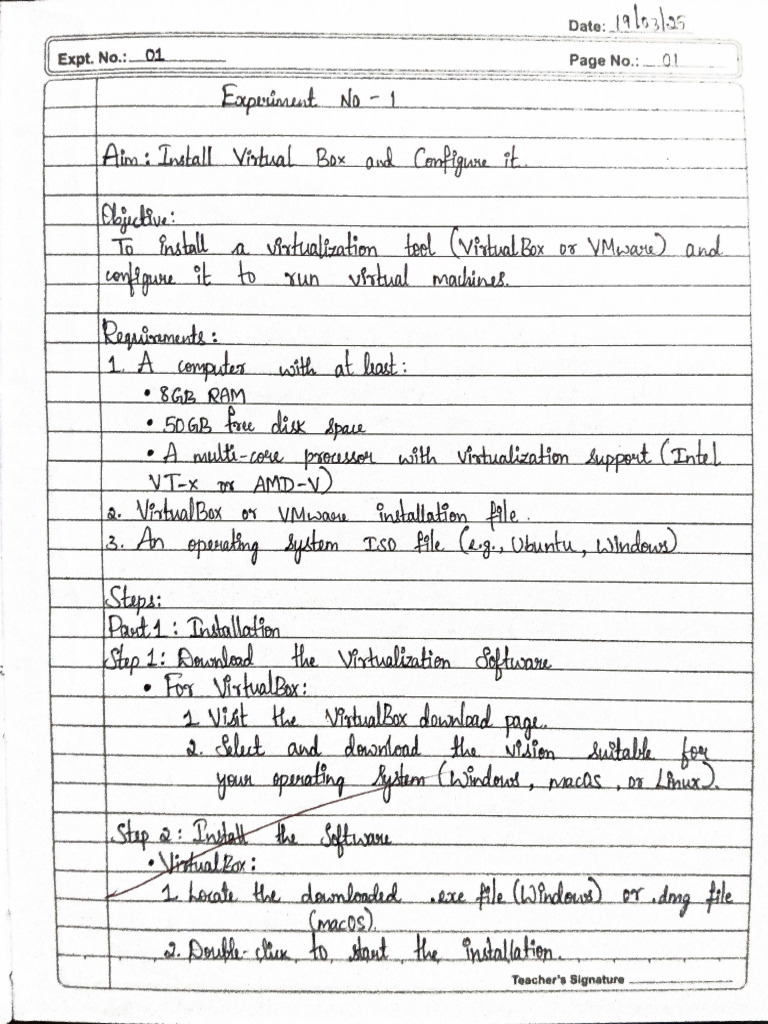 Date: 19/03/25
Expt. No.: 01
Page No.: 01
Experiment No - 1
Aim : Install Virtual Box and Configure it.
Objective:
To install a virtualization tool (VirtualBox or VMware) and
configure it to run virtual machines.
Requirements :
1. A computer with at least :
• 8GB RAM
• 50GB free disk space
• A multi-core processor with virtualization support (Intel
VT-x or AMD-V)
2. VirtualBox or VMware installation file.
3. An operating system ISO file (e.g., Ubuntu, Windows)
Steps:
Part 1 : Installation
Step 1: Download the Virtualization Software
• For VirtualBox:
1. Visit the VirtualBox download page.
2. Select and download the vision suitable for
your operating System (Windows, macOS, or Linux).
Step 2 : Install the Software
• VirtualBox:
1. Locate the downloaded .exe file (Windows) or .dmg file
(macOS).
2. Double-click to start the installation.
Teacher's Signature